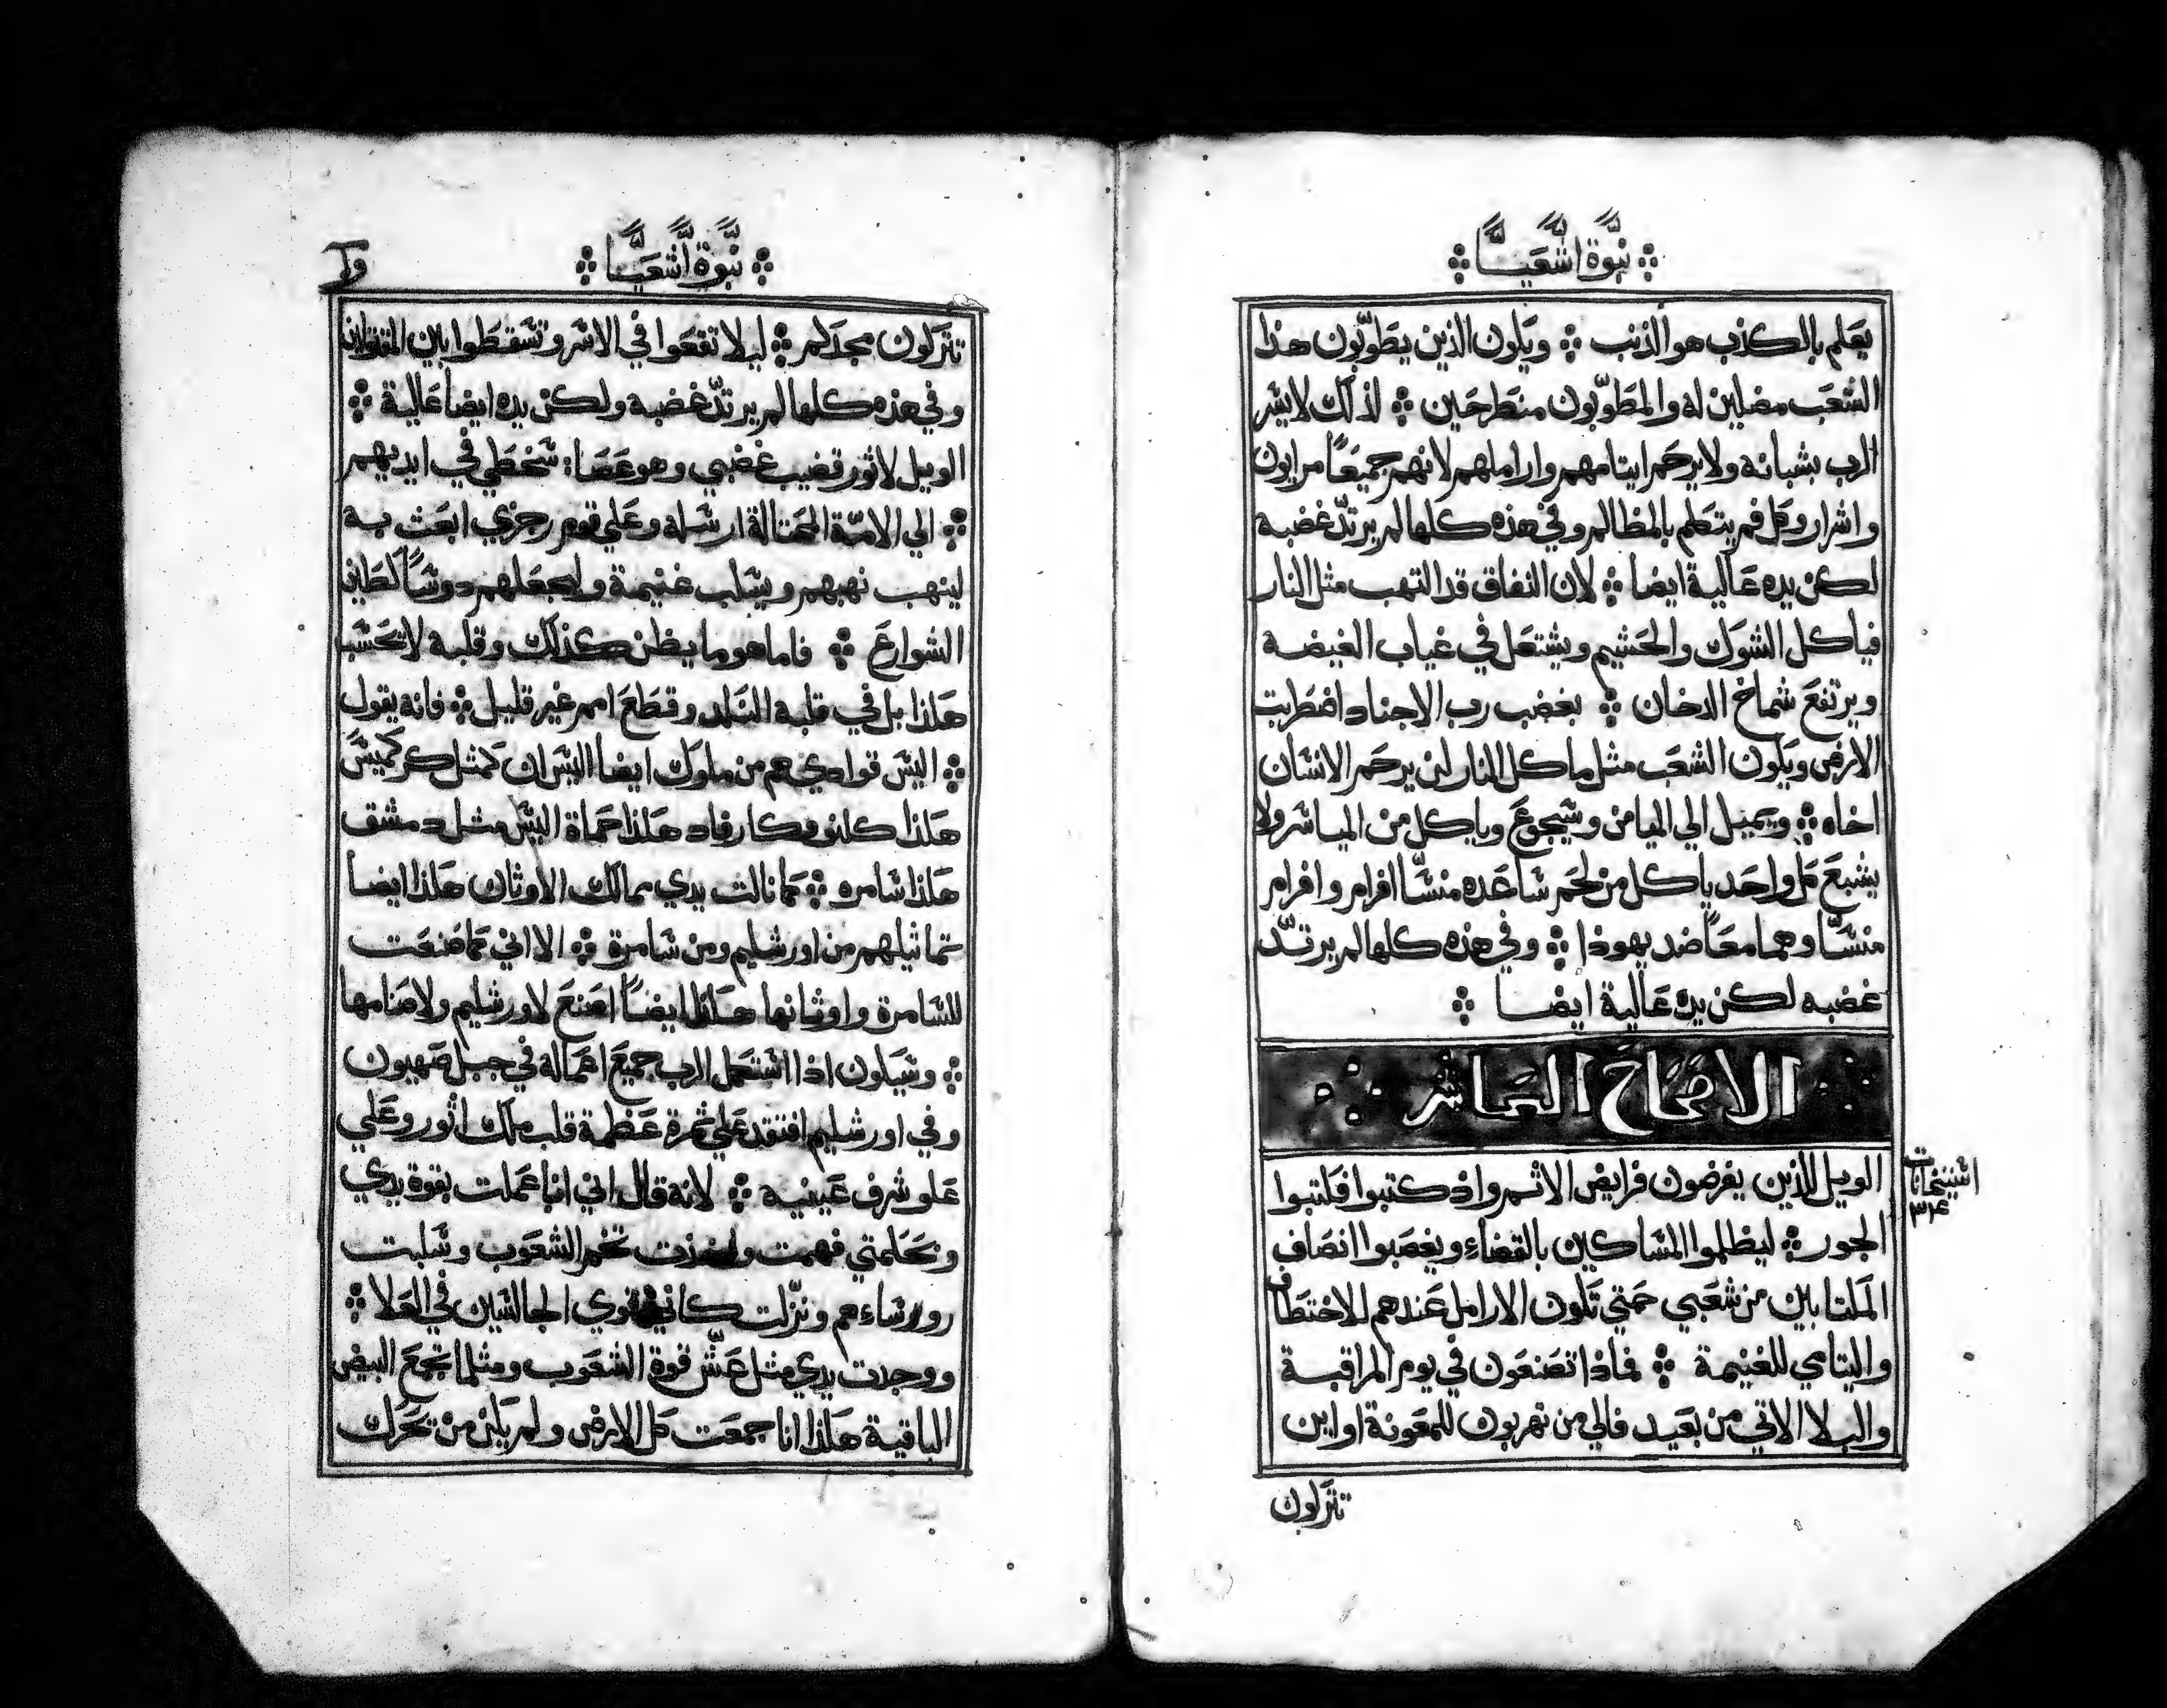 نبوّة اشعيا
يعَلم بالكذب هو الذنب ۞ ويكون الذين يطَوّبون هذا
الشعَب مضلين له والمطَوّبون منطرحَين ۞ لذلك لا يسر
الرب بشبانه ولا يرحَم ايتامهم واراملهم لانهم جميعًا مرايون
واشرار وكل فم يتكلم بالمظالم وفي هذه كلها لم يرتدّ غضبه
لكن يده عَالية ايضا ۞ لان النفاق قد التهب مثل النار
فياكل الشوك والحَشيم ويشتعَل في غياب الغيضة
ويرتفعَ شماخ الدخان ۞ بغضب رب الاجناد اضطَربت
الارض ويكون الشعَب مثل ماكل النار لن يرحَم الانسَان
اخاه ۞ ويميل الي الميامن وسَيجوعَ وياكل من المياسَر ولا
يشبعَ كل واحَد ياكل من لحَم سَاعَده منسَّا افرام وافرام
منسَّا وهما معَا ضد يهوذا ۞ وفي هذه كلها لم يرتدّ
غضبه لكن يده عَالية ايضا ۞
الاصحَاحَ العَاشر
الويل للذين يفرضون فرايض الاثم واذ كتبوا فكتبوا
استنحانات
٣٤
الجور ۞ ليظلموا المسَاكين بالقضاءِ ويغصَبوا انصَاف
المكتابين من شعَبي حَتي تكون الارامل عَندهم للاختطَاف
واليتامي للغنيمة ۞ فماذا تصَنعَون في يوم المراقبة
والبلا الاتي من بعَيد فالي من تهربون للمعَونة او اين
تتركون
نبوّة اشعيا
تتركون مجدكم ۞ ليلا تقعَوا في الاسَر وتسَقطَوا بين المقتولين
وفي هذه كلها لم يرتدّ غضبه ولكن يده ايضا عَالية ۞
الويل لاثور قضيب غضبي وهو عَصَا: سَخطَي في ايديهم
۞ الي الامّة المحَتالة ارسَله وعَلي قوم رجزي ابعَث به
لينهب نهبهم ويسَلب غنيمة ولجعَلهم دوسًا كطَين
الشوارعَ ۞ فاما هو ما يظن كذلك وقلبه لا يحَسَب
هكذا بل في قلبه النكد وقطَعَ امم غير قليل ۞ فانه يقول
۞ اليسَ قوادي هم من ملوك ايضا اليسَ ان كمثل كركميسَ
هكذا كلنو وكارفاد هكذا حَماة اليسَ مثل دمشق
هكذا سَامره ۞ كما نالت يدي ممالك الاوثان هكذا ايضا
تماثيلهم من اورشليم ومن سَامرة ۞ الا اني كما صَنعَت
للسَامرة واوثانها هكذا ايضًا اصَنعَ لاورشليم ولاصَنامها
۞ وسَيكون اذا استكمَل الرب جميعَ اعَماله في جبل صَهيون
وفي اورشليم افتقد عَلي ثمرة عَظمة قلب ملك اثور وعَلي
عَلو شرف عَينيه ۞ لانه قال اني انا عَملت بقوة يدي
وبحَكمتي فهمت واخذت تخم الشعَوب وسَلبت
رورسَاءهم ونزّلت كاني قوي الجالسَين في العَلا ۞
ووجدت يدي مثل عَشّ قوة الشعَوب ومثلما تجمعَ البيض
الباقية هكذا انا جمعَت كل الارض ولم يكن من تحَرك